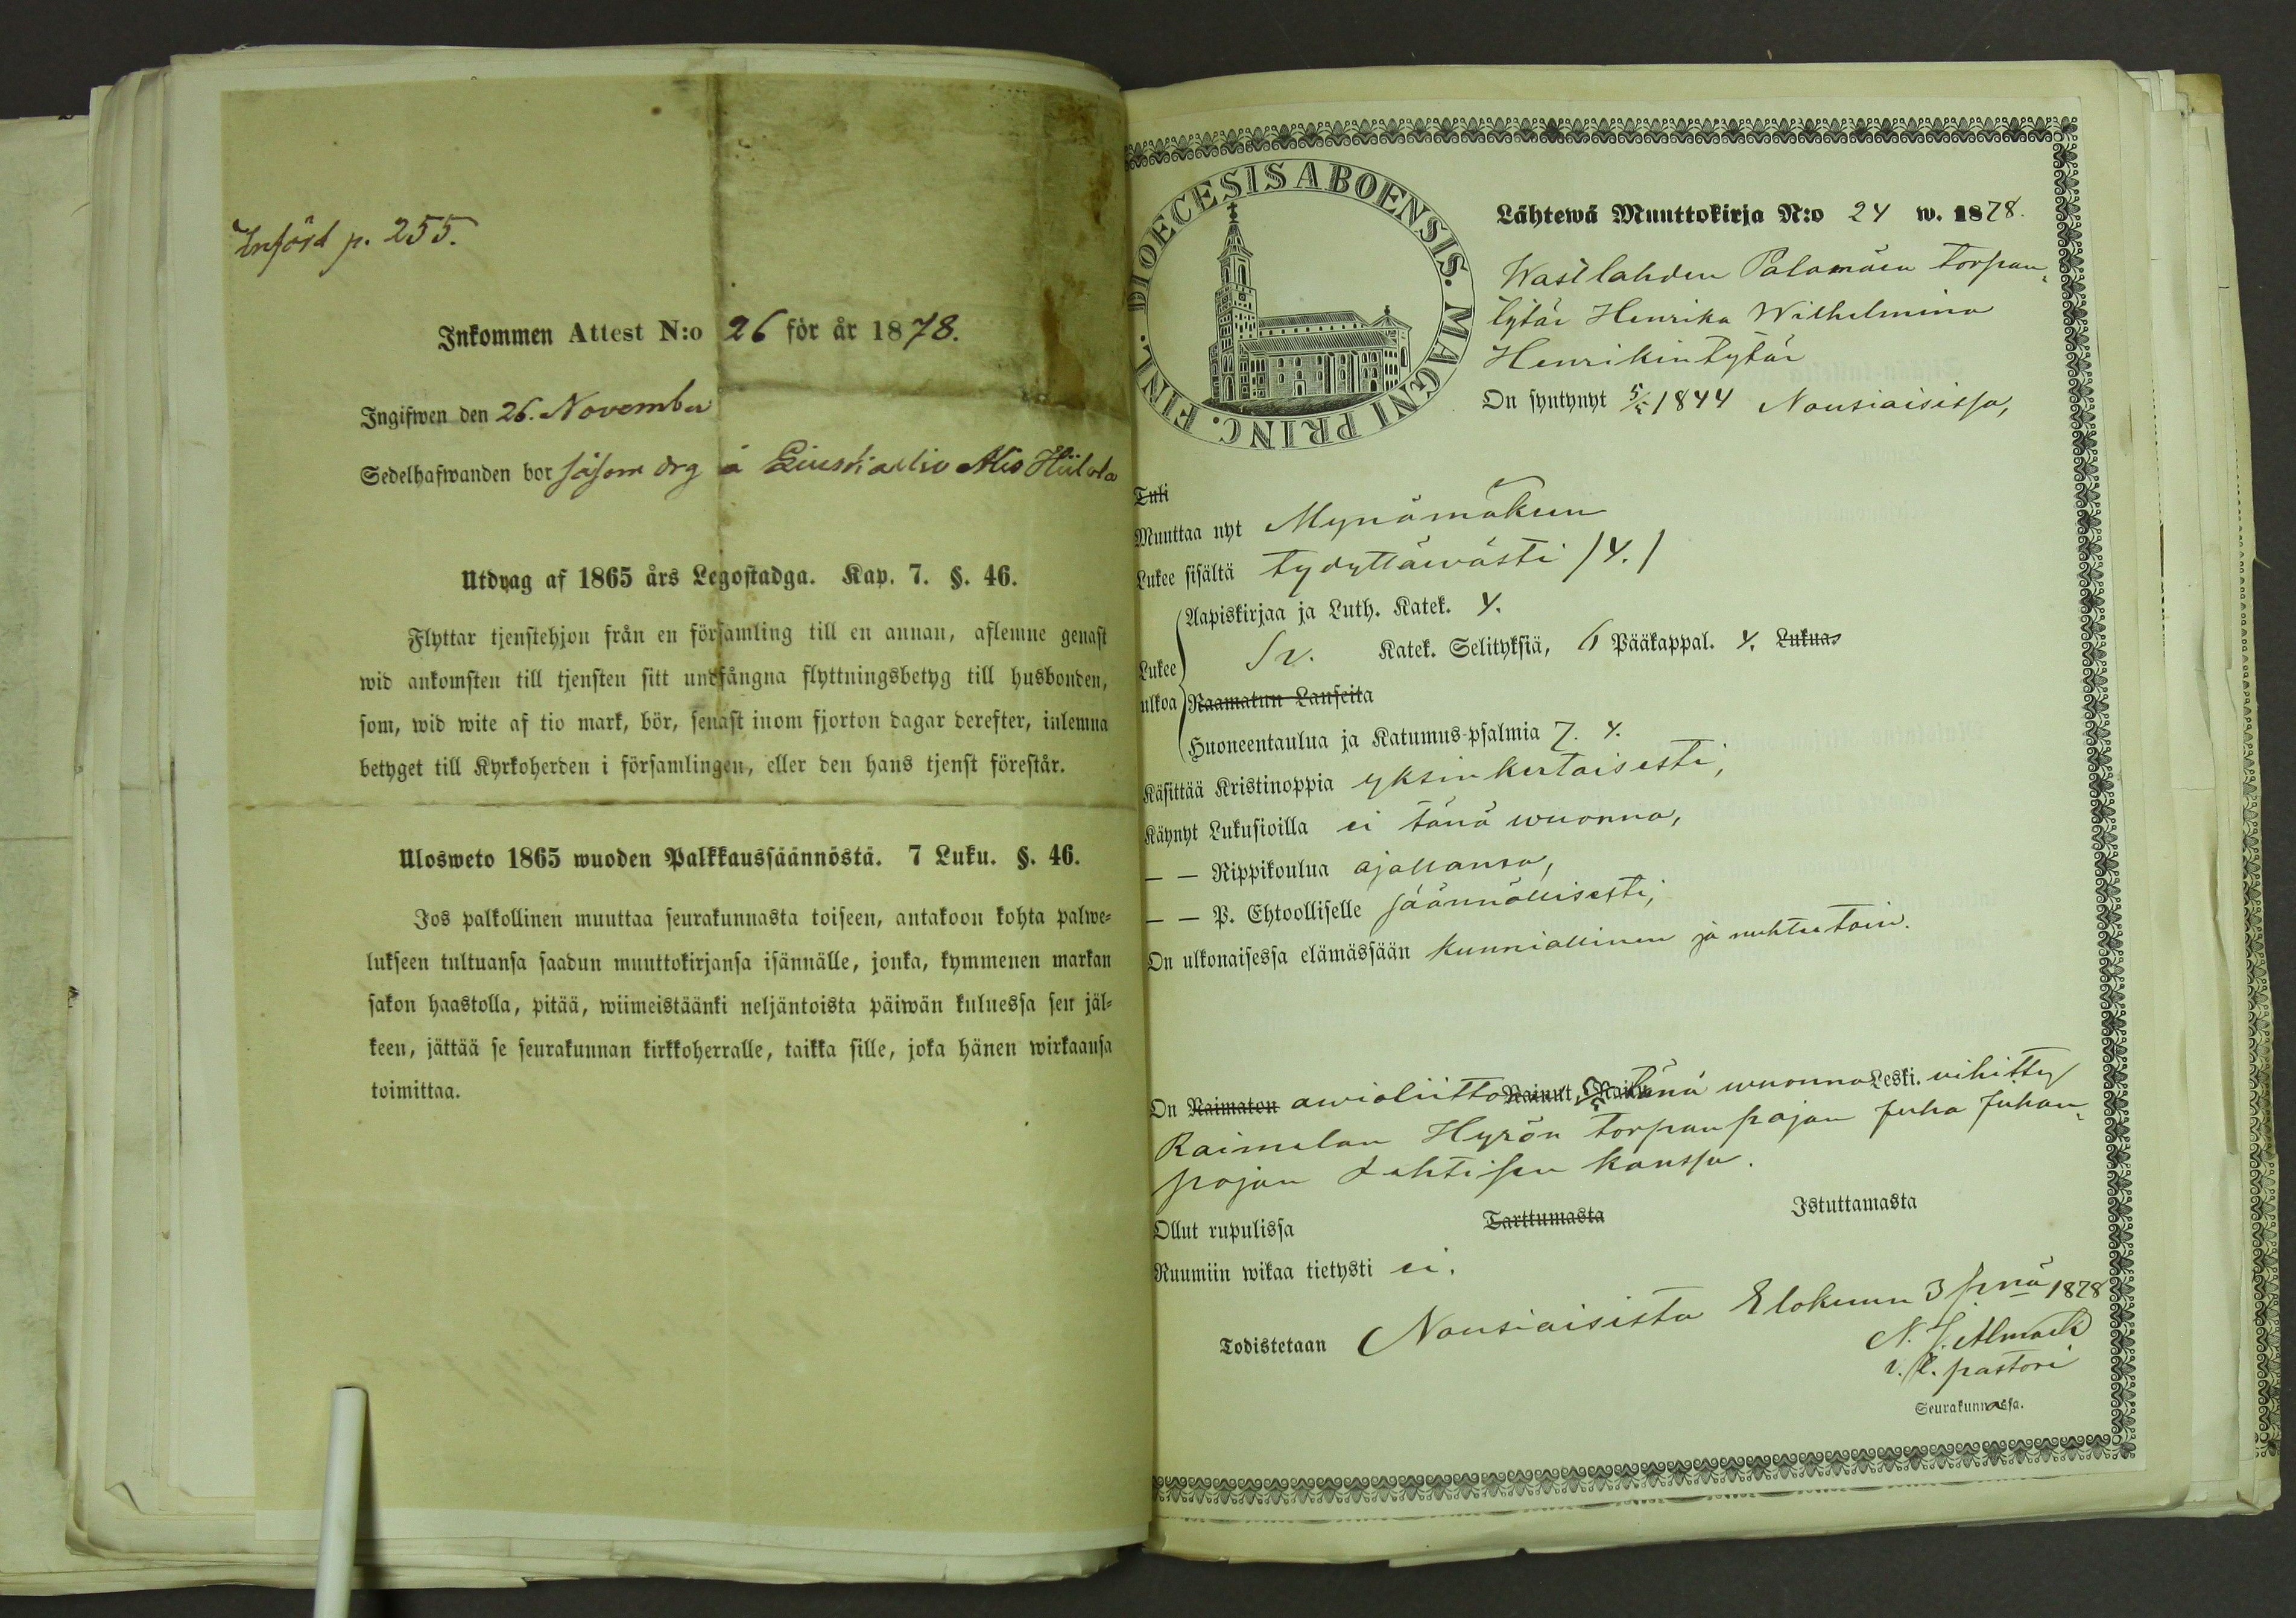 Införd p. 255.
Inkommen Attest N:o 26 för år 1878.
Ingifwen den 26. November
Sedelhafwanden bor såsom drg å Hiilola
Utdrag af 1865 års Legostadga. Kap. 7. §. 46.
Flyttar tjenstehjon från en församling till en annan, aflemne genast
wid ankomsten till tjensten sitt undfångna flyttningsbetyg till husbonden,
som, wid wite af tio mark, bör, senast inom fjorton dagar derefter, inlemna
betyget till Kyrkoherden i församlingen, eller den hans tjenst förestår.
Ulosweto 1865 wuoden Palkkaussäännöstä. 7 Luku. §. 46.
Jos palkollinen muuttaa seurakunnasta toiseen, antakoon kohta palwe-
lukseen tultuansa saadun muuttokirjansa isännälle, jonka, kymmenen markan
sakon haastolla, pitää, wiimeistäänki neljäntoista päiwän kuluessa sen jäl-
keen, jättää se seurakunnan kirkkoherralle, taikka sille, joka hänen wirkaansa
toimittaa.
FINL. DIOECESIS ABOENSIS. MAGNI PRINC.
Lähtewä Muuttokirja N:o 24 w. 1878.
Wastlahden Palomäen torpan
tytär Henrika Wilhelmina
Henrikintytär
On syntynyt 5/5 1844 Nousiaisissa,
Tuli
Muuttaa nyt Mynämäkeen
Lukee sisältä tydyttäwästi /4./
Aapiskirjaa ja Luth. Katek. 4.
Lukee Sv. Katek. Selityksiä, 6 Pääkappal. 4. Lukuas
ulkoa Raamatun Lauseita
Huoneentaulua ja Katumus-psalmia 7. 4.
Käsittää Kristinoppia yksinkertaisesti,
Käynyt Lukusioilla ei tänä wuonna,
— — Rippikoulua ajallansa,
— — P. Ehtoolliselle säännöllisesti,
On ulkonaisessa elämässään kunniallinen ja nuhteetoin.
On Naimaton awioliitto Nainut, tänä wuonna Leski. vihitty
Raimelan Hyrön torpanpojan Juha Juhan-
pojan Lehtisen kanssa.
Ollut rupulissa Tarttumasta Istuttamasta
Ruumiin wikaa tietysti ei.
Todistetaan Nousiaisista Elokuun 3 pnä 1878
N. J. Almark
v. t. pastori
Seurakunnassa.